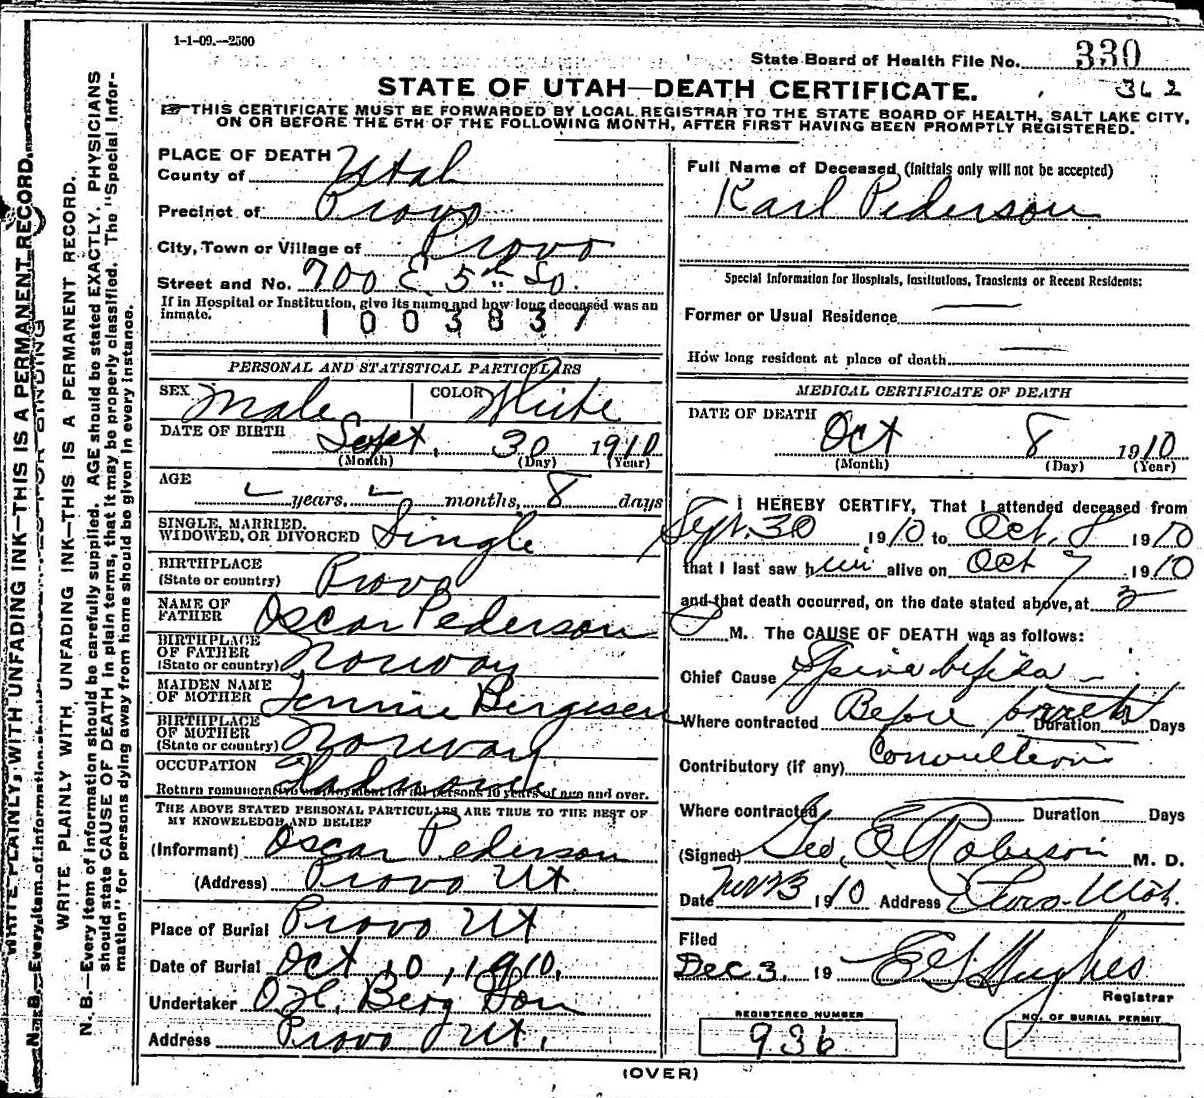 1-1-09.—2500
State Board of Health File No. 330
362
STATE OF UTAH—DEATH CERTIFICATE.
THIS CERTIFICATE MUST BE FORWARDED BY LOCAL REGISTRAR TO THE STATE BOARD OF HEALTH, SALT LAKE CITY,
ON OR BEFORE THE 5TH OF THE FOLLOWING MONTH, AFTER FIRST HAVING BEEN PROMPTLY REGISTERED.
PLACE OF DEATH
County of Utah
Precinct of Provo
City, Town or Village of Provo
Street and No. 700 E. 5th So.
If in Hospital or Institution, give its name and how long deceased was an
inmate.
1003837
PERSONAL AND STATISTICAL PARTICULARS
SEX Male COLOR White
DATE OF BIRTH Sept. 30 1910
(Month) (Day) (Year)
AGE years, months, 8 days
SINGLE, MARRIED,
WIDOWED, OR DIVORCED Single
BIRTHPLACE
(State or country) Provo
NAME OF
FATHER Oscar Pederson
BIRTHPLACE
OF FATHER
(State or country) Norway
MAIDEN NAME
OF MOTHER Jennie Bergesen
BIRTHPLACE
OF MOTHER
(State or country) Norway
OCCUPATION
Return remunerative employment for all persons 10 years of age and over.
THE ABOVE STATED PERSONAL PARTICULARS ARE TRUE TO THE BEST OF
MY KNOWLEDGE AND BELIEF
(Informant) Oscar Pederson
(Address) Provo Ut.
Place of Burial Provo Ut
Date of Burial Oct 10, 1910.
Undertaker O.H. Berg Son
Address Provo Ut.
Full Name of Deceased (initials only will not be accepted)
Karl Pederson
Special Information for Hospitals, Institutions, Transients or Recent Residents:
Former or Usual Residence
How long resident at place of death
MEDICAL CERTIFICATE OF DEATH
DATE OF DEATH
Oct 8 1910
(Month) (Day) (Year)
I HEREBY CERTIFY, That I attended deceased from
Sept. 30 1910 to Oct. 8 1910
that I last saw him alive on Oct 7 1910
and that death occurred, on the date stated above, at
M. The CAUSE OF DEATH was as follows:
Chief Cause Spina bifida
Where contracted Before birth Duration Days
Contributory (if any) Convultions
Where contracted Duration Days
(Signed) Geo. E. Robison M. D.
Date Nov 23 1910 Address Provo Utah.
Filed
Dec 3. 19 E G Hughes
Registrar
REGISTERED NUMBER
936
NO. OF BURIAL PERMIT
(OVER)
WRITE PLAINLY, WITH UNFADING INK—THIS IS A PERMANENT RECORD.
WRITE PLAINLY, WITH UNFADING INK—THIS IS A PERMANENT RECORD.
N. B.—Every item of information should be carefully supplied. AGE should be stated EXACTLY. PHYSICIANS
should state CAUSE OF DEATH in plain terms, that it may be properly classified. The "Special Infor-
mation" for persons dying away from home should be given in every instance.